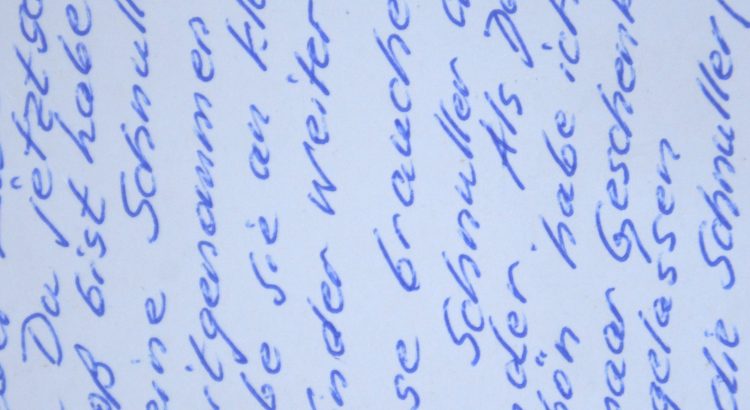 Du jetzt so
oß bist habe
eine Schnull
itgenommen
be sie an kl
inder weiter
se brauche
Schnuller
der Als Da
ön habe ich
aar Geschenk
gelassen
die Schnuller